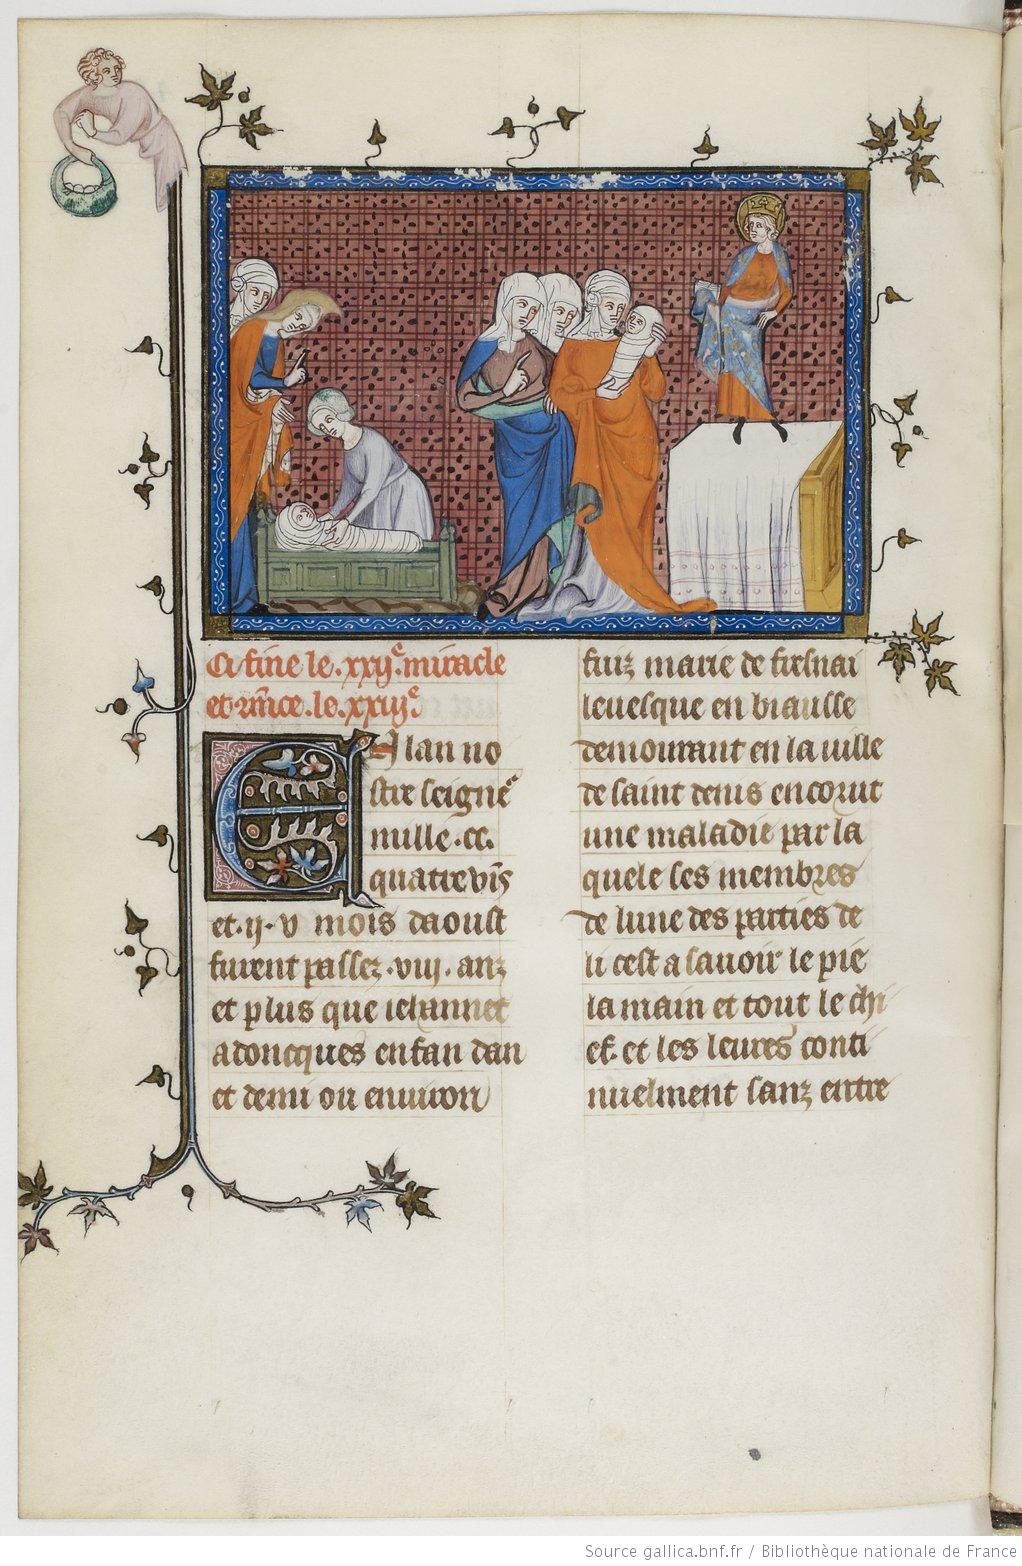 Ci fine le .xxij.e miracle
et cm̃ce .le .xxiij.e
En lan no
stre seigne
mille .cc.
quatre vīs
et .ij. v mois daoust
furent passez .viij. anz
et plus que iehannet
adoncques enfan dan
et demi ou enuiron
fuiz marie de fresnai
leuesque en biausse
demourant en la uille
de saint denis encorut
une maladie par la
quele ses membres
de lune des parties de
li cest a sauoir le pie
la main et tout le chi
ef. et les leures conti
nuelment sanz entre
Source gallica.bnf.fr / Bibliothèque nationale de France